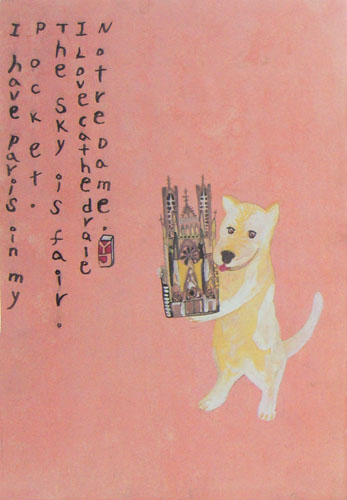 I have paris in my
Pocket.
The sky is fair.
I Love cathedrale
Notre Dame.